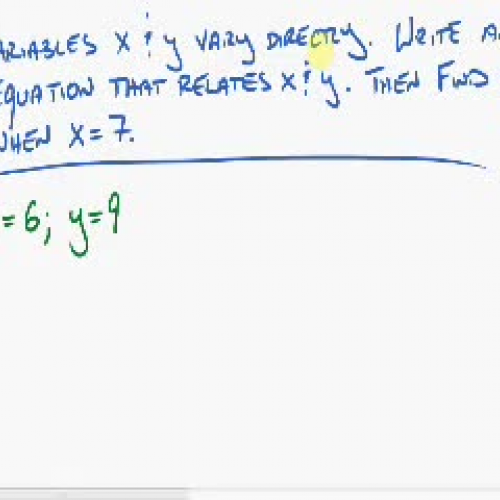 ARIABLES X & y VARY DIRECTLY. WRITE A
EQUATION THAT RELATES X & y. THEN FIND
WHEN X = 7.
= 6; y = 9